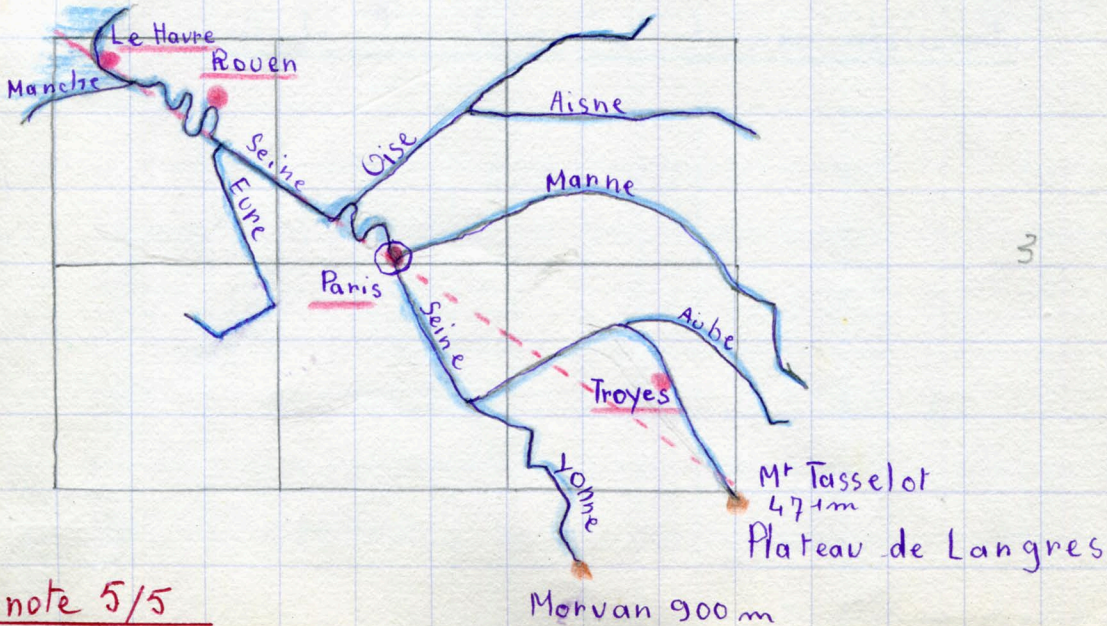 Le Havre
Rouen
Manche
Seine
Oise
Aisne
Eure
Marne
3
Paris
Seine
Aube
Troyes
Yonne
Mt Tasselot
471m
Plateau de Langres
note 5/5
Morvan 900 m